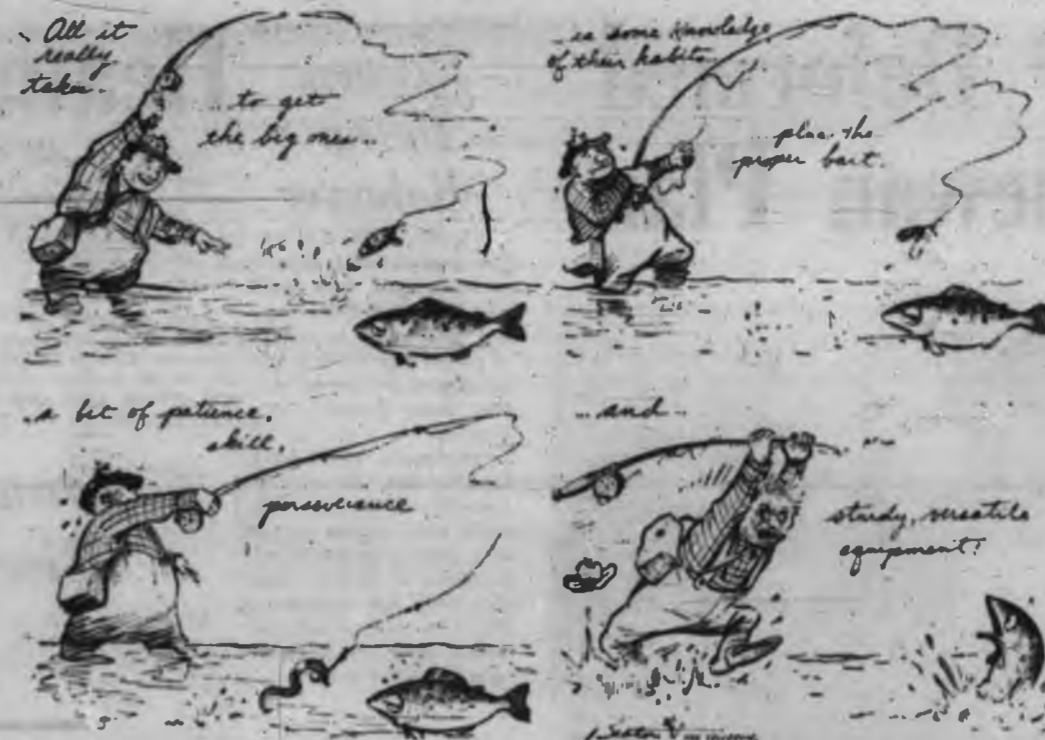 All it
really
takes..
...to get
the big ones...
...is some knowledge
of their habits...
...plus the
proper bait.
...a bit of patience,
skill,
perseverance
...and...
sturdy, versatile
equipment!